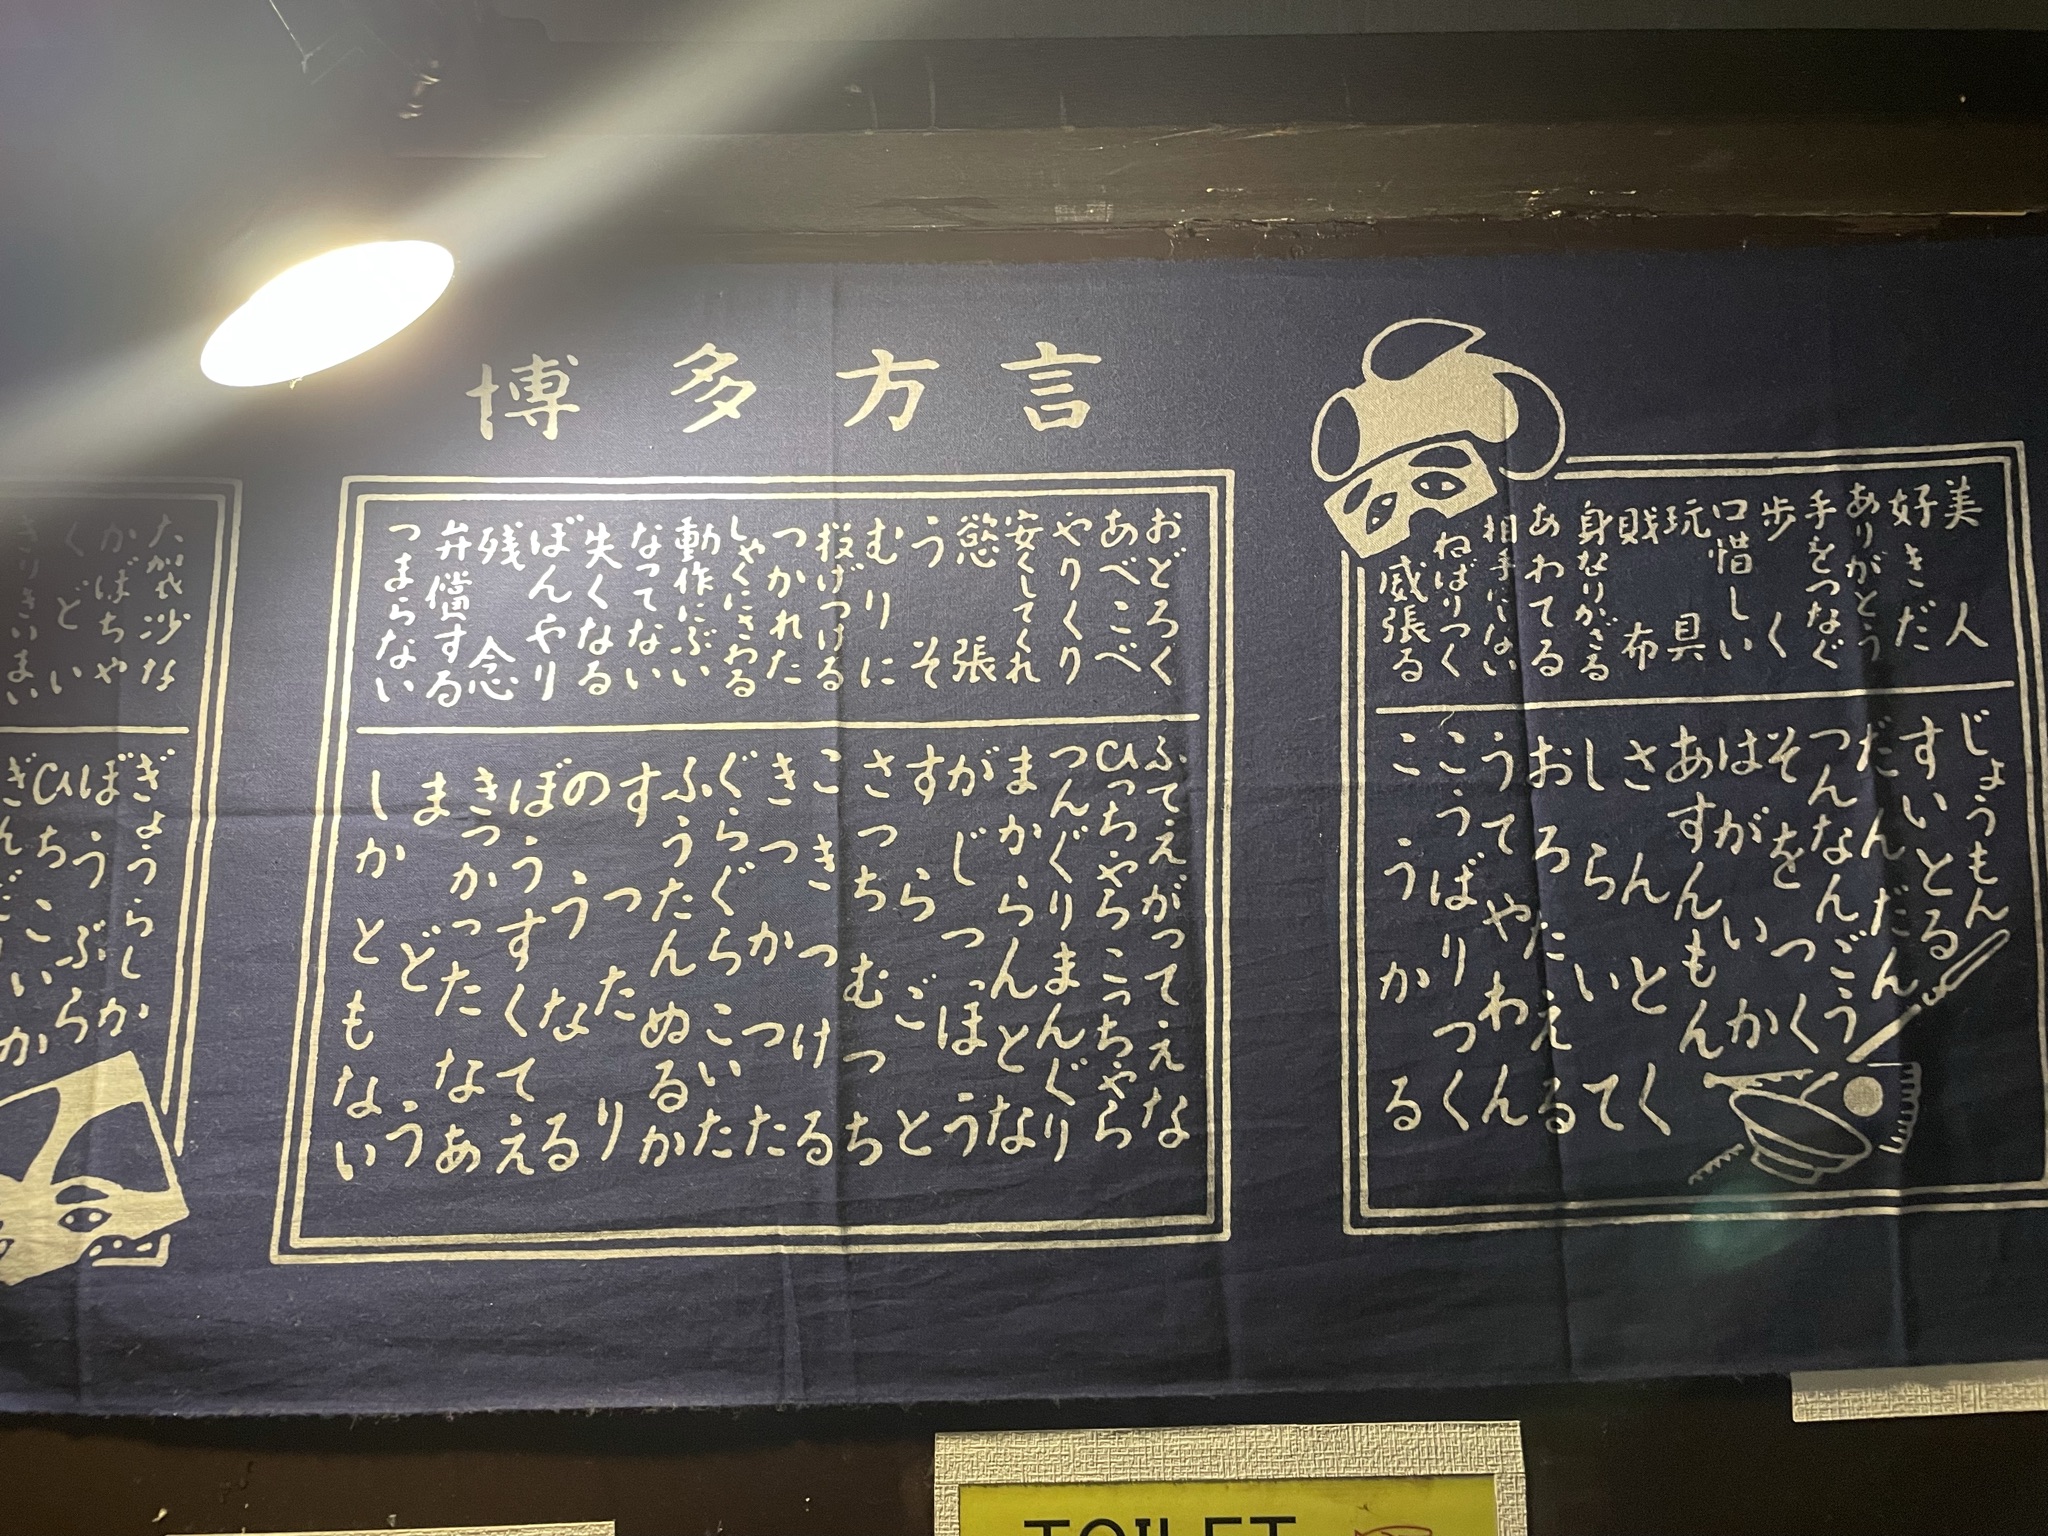 博多方言
美人
好きだ
ありがとう
手をつなぐ
歩く
口惜しい
玩具
財布
あわてる
ねばりつく
威張る
じょうもん
すいとる
だんだん
つんなんごう
そをつく
はがいか
あすんもん
さんとく
しらいて
おろたえる
うてやわん
こうばりつく
こうかる
おどろく
あべこべ
やりくり
安くしてくれ
慾張
うそ
むりに
投げつける
つかれた
しゃくにさわる
動作にぶい
なってない
失くなる
ぼんやり
残念
弁償する
つまらない
ふてえがってえな
ひっちゃらこっちゃら
つんぐりまんぐり
まからんとな
がじっぽう
すらごと
さっちむっち
こきつける
きつかつた
ぐらぐらこいた
ふうたんぬるか
すったり
のうなる
ぼうすくてえ
きつかったなあ
まどう
しかともない
大袈沙な
かばちゃ
くどい
ぎょうらしか
ぼうぶら
ひちこいか
TOILET